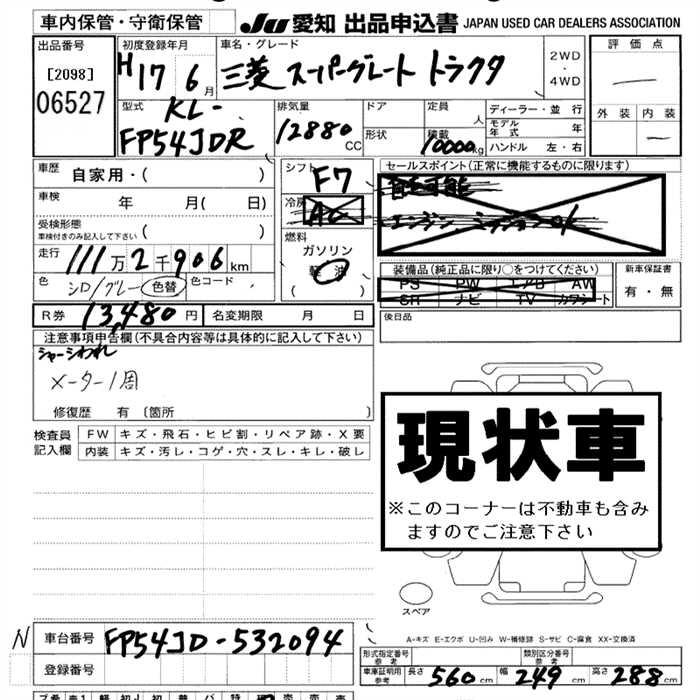 車内保管・守衛保管 JU 愛知 出品申込書 JAPAN USED CAR DEALERS ASSOCIATION
出品番号 [2098] 06527
初度登録年月 H17 6月
車名・グレード 三菱 スーパーグレート トラクタ
2WD・4WD
評価点 —
外装 内装 —
型式 KL-FP54JDR
排気量 12880 CC
ドア 形状
定員 人 積載 10000kg
ディーラー・並行
モデル年式 年
ハンドル 左・右
車歴 自家用・( )
車検 年 月( 日)
受検形態 車検付きのみ記入して下さい ( )
走行 111万2千906km
色 シロ/グレー 色替 色コード
シフト F7
冷房 AC
燃料 ガソリン 軽油 ( )
セールスポイント(正常に機能するものに限ります)
エンジン ミッションOK
装備品(純正品に限り○をつけてください)
PS PW エアB AW
SR ナビ TV カワシート
新車保証書 有・無
R券 13,480円 名変期限 月 日
後日品
注意事項申告欄(不具合内容等は具体的に記入して下さい)
シャーシわれ
メーター1周
修復歴 有 〔箇所 〕
検査員記入欄
FW キズ・飛石・ヒビ割・リペア跡・X要
内装 キズ・汚レ・コゲ・穴・スレ・キレ・破レ
現状車
※このコーナーは不動車も含み
ますのでご注意下さい
スペア
A-キズ E-エクボ U-凹み W-補修跡 S-サビ C-腐食 XX-交換済
N 車台番号 FP54JD-532094
登録番号
形式指定番号 参考 類別区分番号 参考
車庫証明用 参考 長さ 560cm 幅 249cm 高さ 288cm